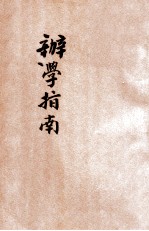 辦學指南